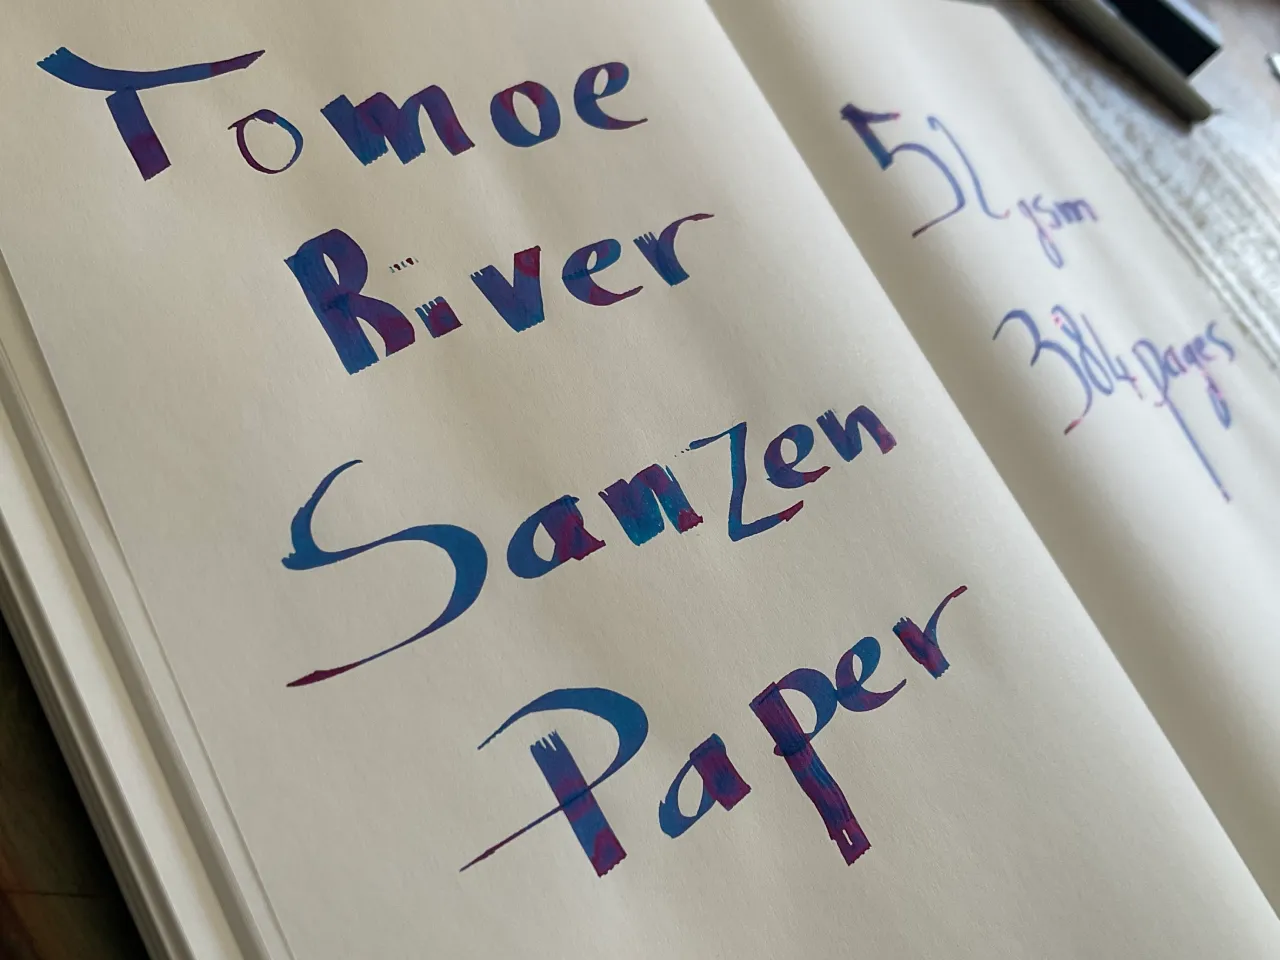 Tomoe
River
Sanzen
Paper
52 gsm
384 Pages